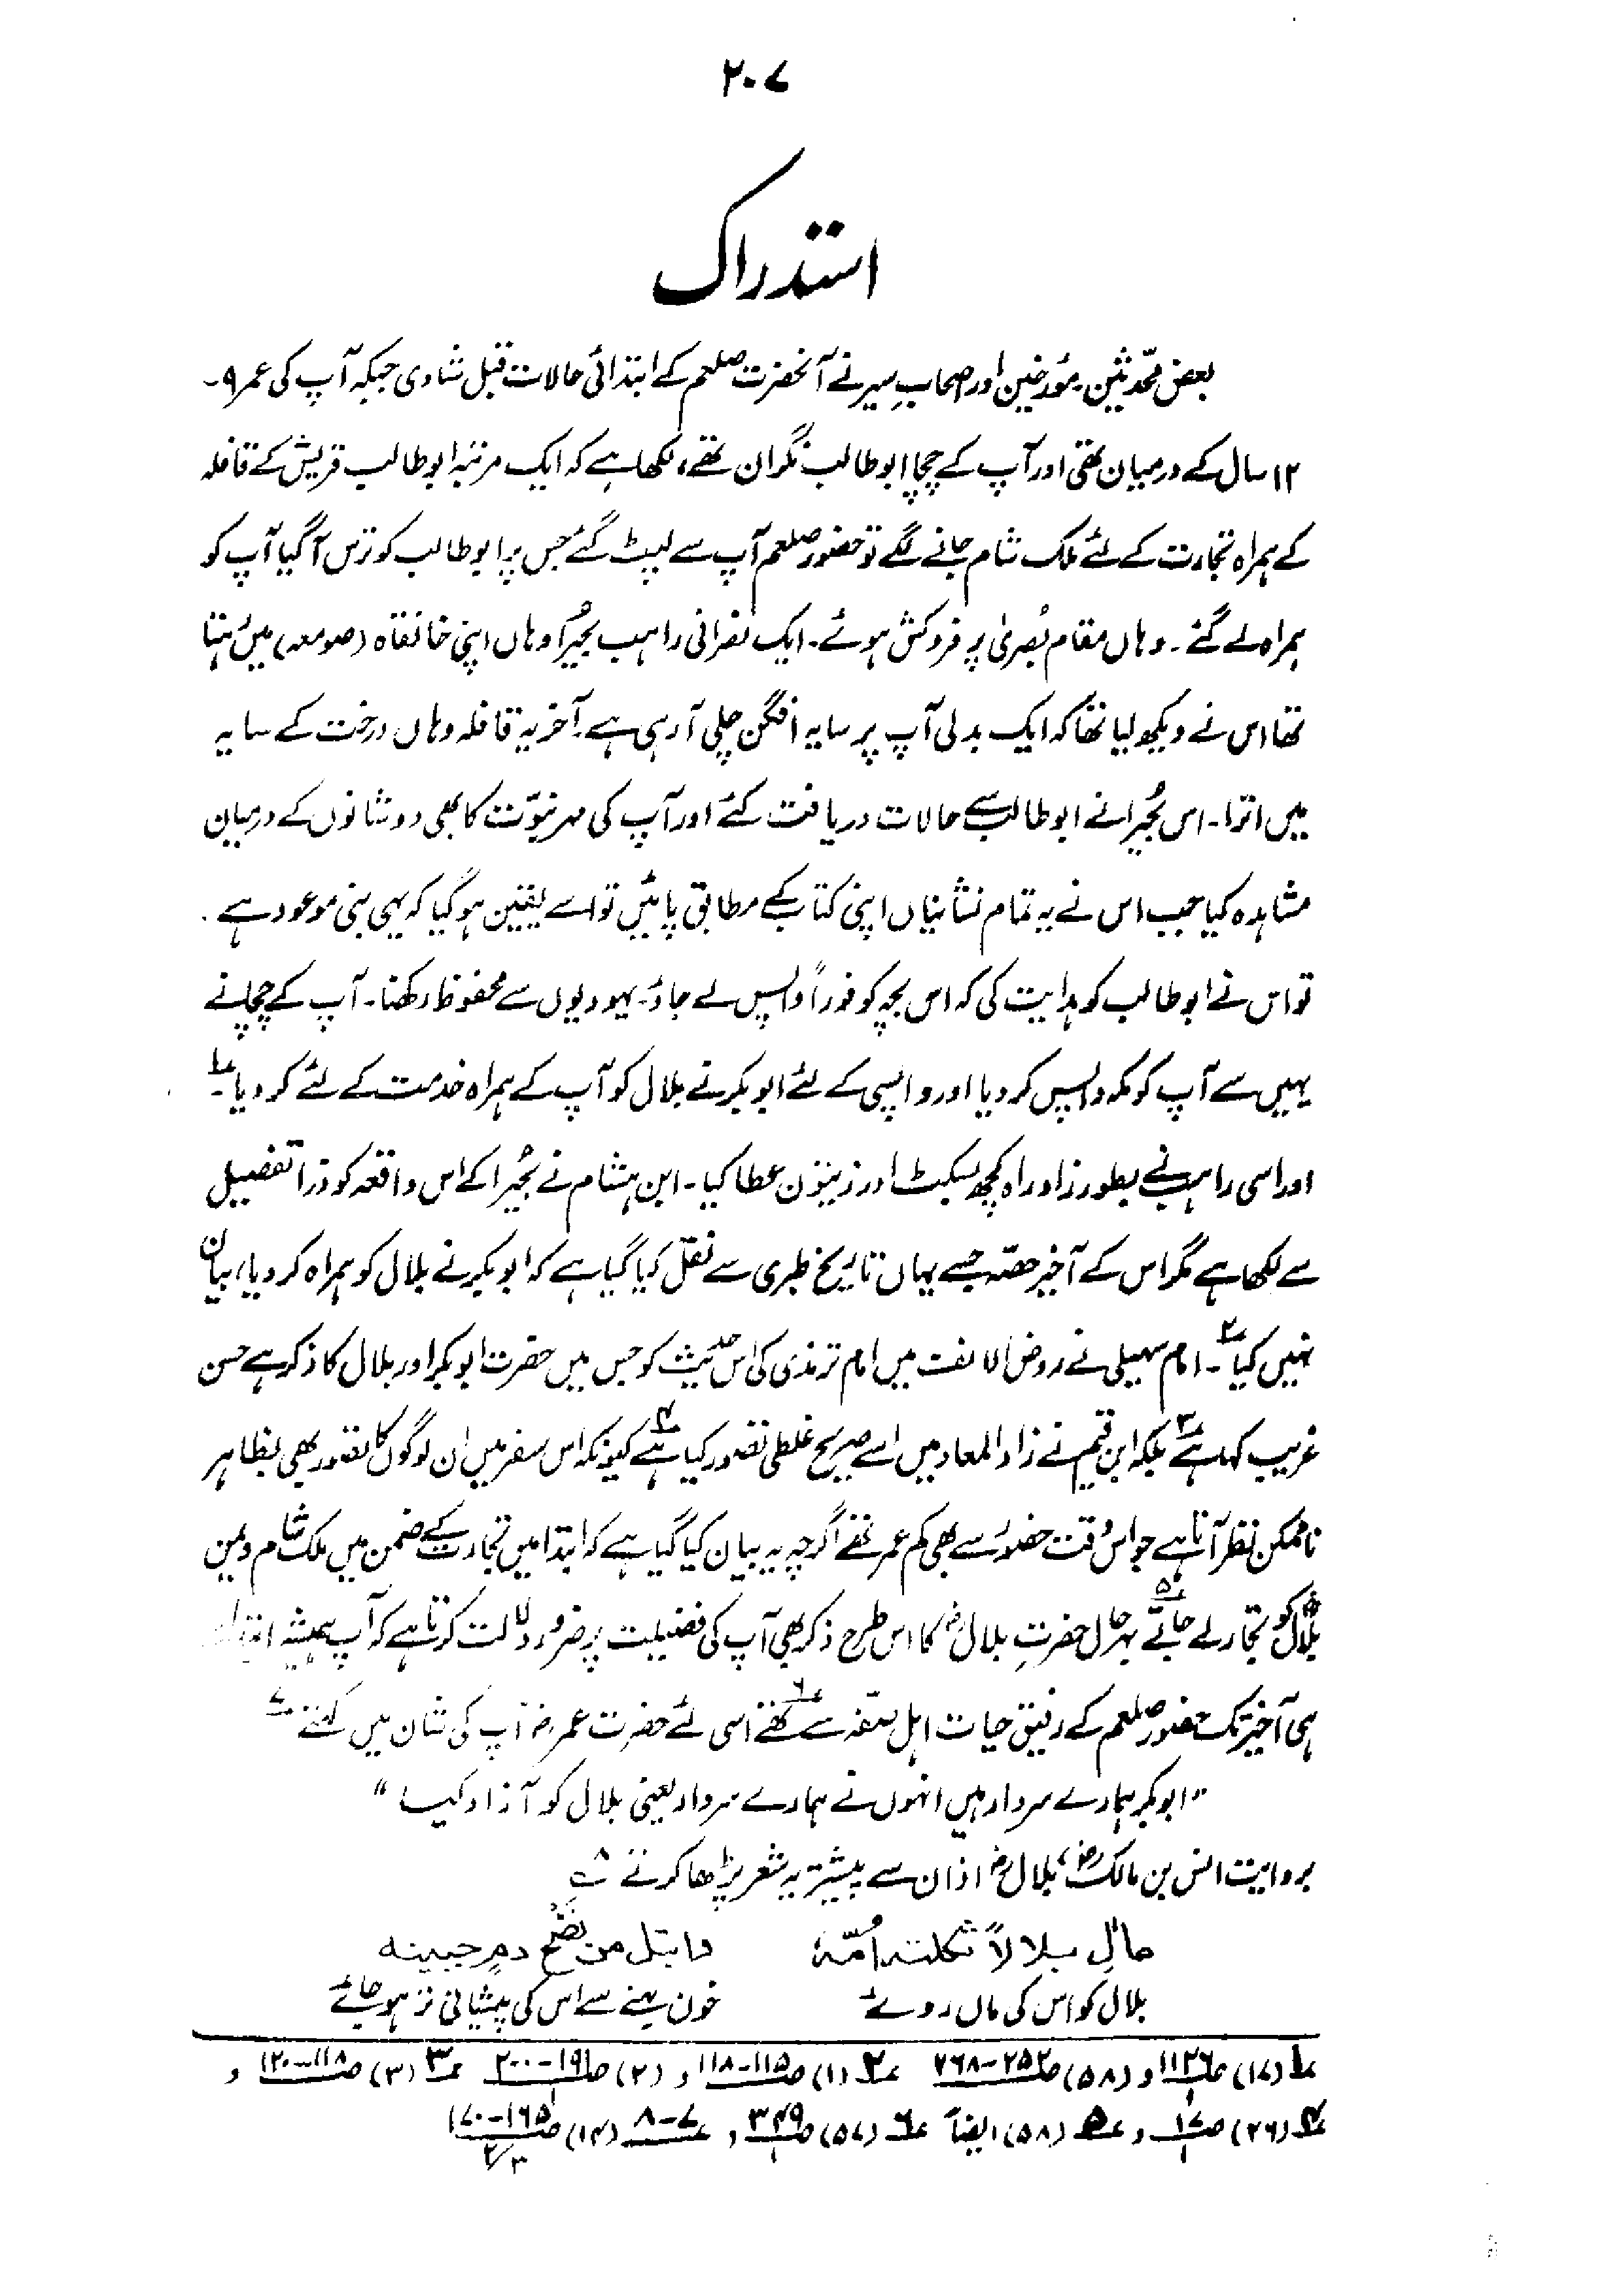 ۲۰۷
استدراک
بعض محدّثین۔مؤرخین اور اصحابِ سیر نے آنحضرت صلعم کے ابتدائی حالات قبل شادی جبکہ آپ کی عمر ۹۔
۱۲ سال کے درمیان تھی اور آپ کے چچا ابو طالب نگران تھے، لکھا ہے کہ ایک مرتبہ ابو طالب قریش کے قافلہ
کے ہمراہ تجارت کے لئے ملک شام جانے لگے تو حضور صلعم آپ سے لپٹ گئے جس پر ابو طالب کو ترس آگیا آپ کو
ہمراہ لے گئے ۔ وہاں مقام بُصریٰ پر فروکش ہوئے۔ ایک نصرانی راہب بُحیرا وہاں اپنی خانقاہ (صومعہ) میں رہتا
تھا اس نے دیکھ لیا تھا کہ ایک بدلی آپ پر سایہ افگن چلی آرہی ہے۔ آخر یہ قافلہ وہاں درخت کے سایہ
میں اترا۔ اس بُحیرا نے ابو طالب سے حالات دریافت کئے اور آپ کی مہر نبوّت کا بھی دو شانوں کے درمیان
مشاہدہ کیا جب اس نے یہ تمام نشانیاں اپنی کتاب کے مطابق پائیں تو اسے یقین ہو گیا کہ یہی نبی موعود ہے ۔
تو اس نے ابو طالب کو ہدایت کی کہ اس بچہ کو فوراً واپس لے جاؤ۔ یہودیوں سے محفوظ رکھنا۔ آپ کے چچا نے
یہیں سے آپ کو مکہ واپس کر دیا اور واپسی کے لئے ابو بکر نے بلال کو آپ کے ہمراہ خدمت کے لئے کر دیا ؎۱
اور اسی راہب نے بطور زاد راہ کچھ بسکٹ اور زیتون عطا کیا۔ ابن ہشام نے بُحیرا کے اس واقعہ کو ذرا تفصیل
سے لکھا ہے مگر اس کے آخیر حصّہ جسے یہاں تاریخ طبری سے نقل کیا گیا ہے کہ ابو بکر نے بلال کو ہمراہ کر دیا، بیان
نہیں کیا ؎۲۔ امام سہیلی نے روض الانف میں امام ترمذی کی اس حدیث کو جس میں حضرت ابو بکر اور بلال کا ذکر ہے حسن
غریب کہا ہے ؎۳ بلکہ ابن قیم نے زاد المعاد میں اسے صریح غلطی تصور کیا ہے ؎۴ کیونکہ اس سفر میں ان لوگوں کا تصور بھی بظاہر
ناممکن نظر آتا ہے جو اس وقت حضور سے بھی کم عمر تھے اگرچہ یہ بیان کیا گیا ہے کہ ابتدا میں تجارت کے ضمن میں ملک شام و یمن
بلال کو تجار لے جاتے ؎۵ بہرحال حضرتِ بلالؓ کا اس طرح ذکر بھی آپ کی فضیلت پر ضرور دلالت کرتا ہے کہ آپ ہمیشہ
ہی آخیر تک حضور صلعم کے رفیق حیات اہل صفہ سے تھے ؎۶ اسی لئے حضرت عمرؓ آپ کی شان میں کہتے ؎۷
"ابو بکر ہمارے سردار ہیں انہوں نے ہمارے سردار یعنی بلال کو آزاد کیا"
بروایت انس بن مالکؓ، بلالؓ اذان سے پیشتر یہ شعر پڑھا کرتے ؎۸
مالِ بلالاً ثکلتہ اُمّہٗ وابتل من نضح دمٍ جبینہ
بلال کو اس کی ماں روئے خون بہنے سے اس کی پیشانی تر ہو جائے
؎۱ (۱۷) ص۱۱۲۶ و (۵۸) ص۲۵۲-۷۶۸ ؎۲ (۱) ص۱۱۵-۱۱۸ و (۲) ص۱۹۱-۲۰۰ ؎۳ (۳) ص۱۱۸-۱۲۰ و
؎۴ (۲۶) ص۱۷/۱ و ؎۵ (۵۸) ایضاً ؎۶ (۵۷) ص۳۴۹/۱ و ؎۷-۸ (۱۴) ص۱۶۵-۱۷۰ ۳/۲